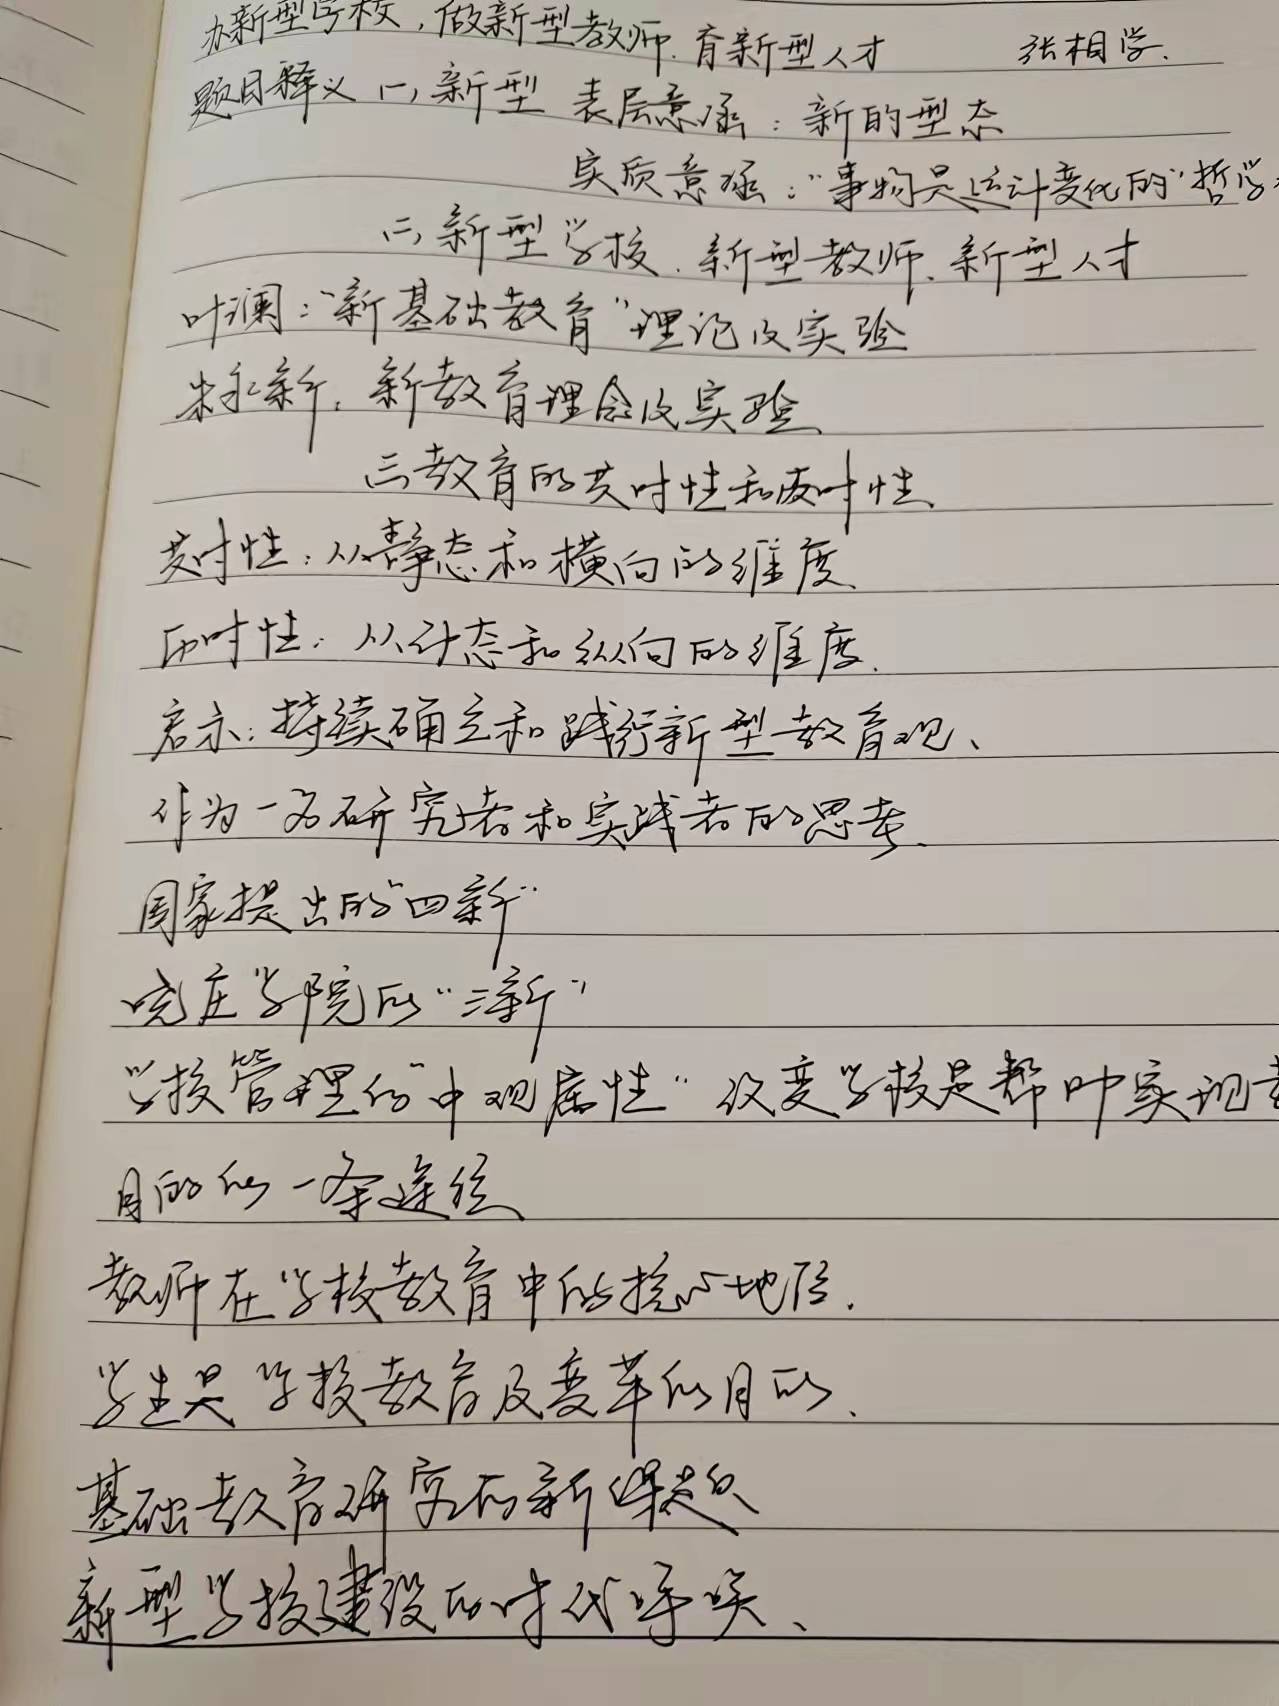 办新型学校，做新型教师，育新型人才 张相学.
题目释义 (一)，新型 表层意涵：新的型态
实质意涵："事物是运动变化的"哲学
(二)，新型学校、新型教师、新型人才
叶澜："新基础教育"理论及实验
朱永新：新教育理念及实验
三教育的共时性和历时性
共时性：从静态和横向的维度
历时性：从动态和纵向的维度.
启示：持续确立和践行新型教育观、
作为一名研究者和实践者的思考
国家提出的"四新"
晓庄学院的"三新"
学校管理的"中观属性" 改变学校是帮助实现
目的的一条途径
教师在学校教育中的核心地位.
学生是学校教育及变革的目的.
基础教育研究的新课题
新型学校建设的时代呼唤、